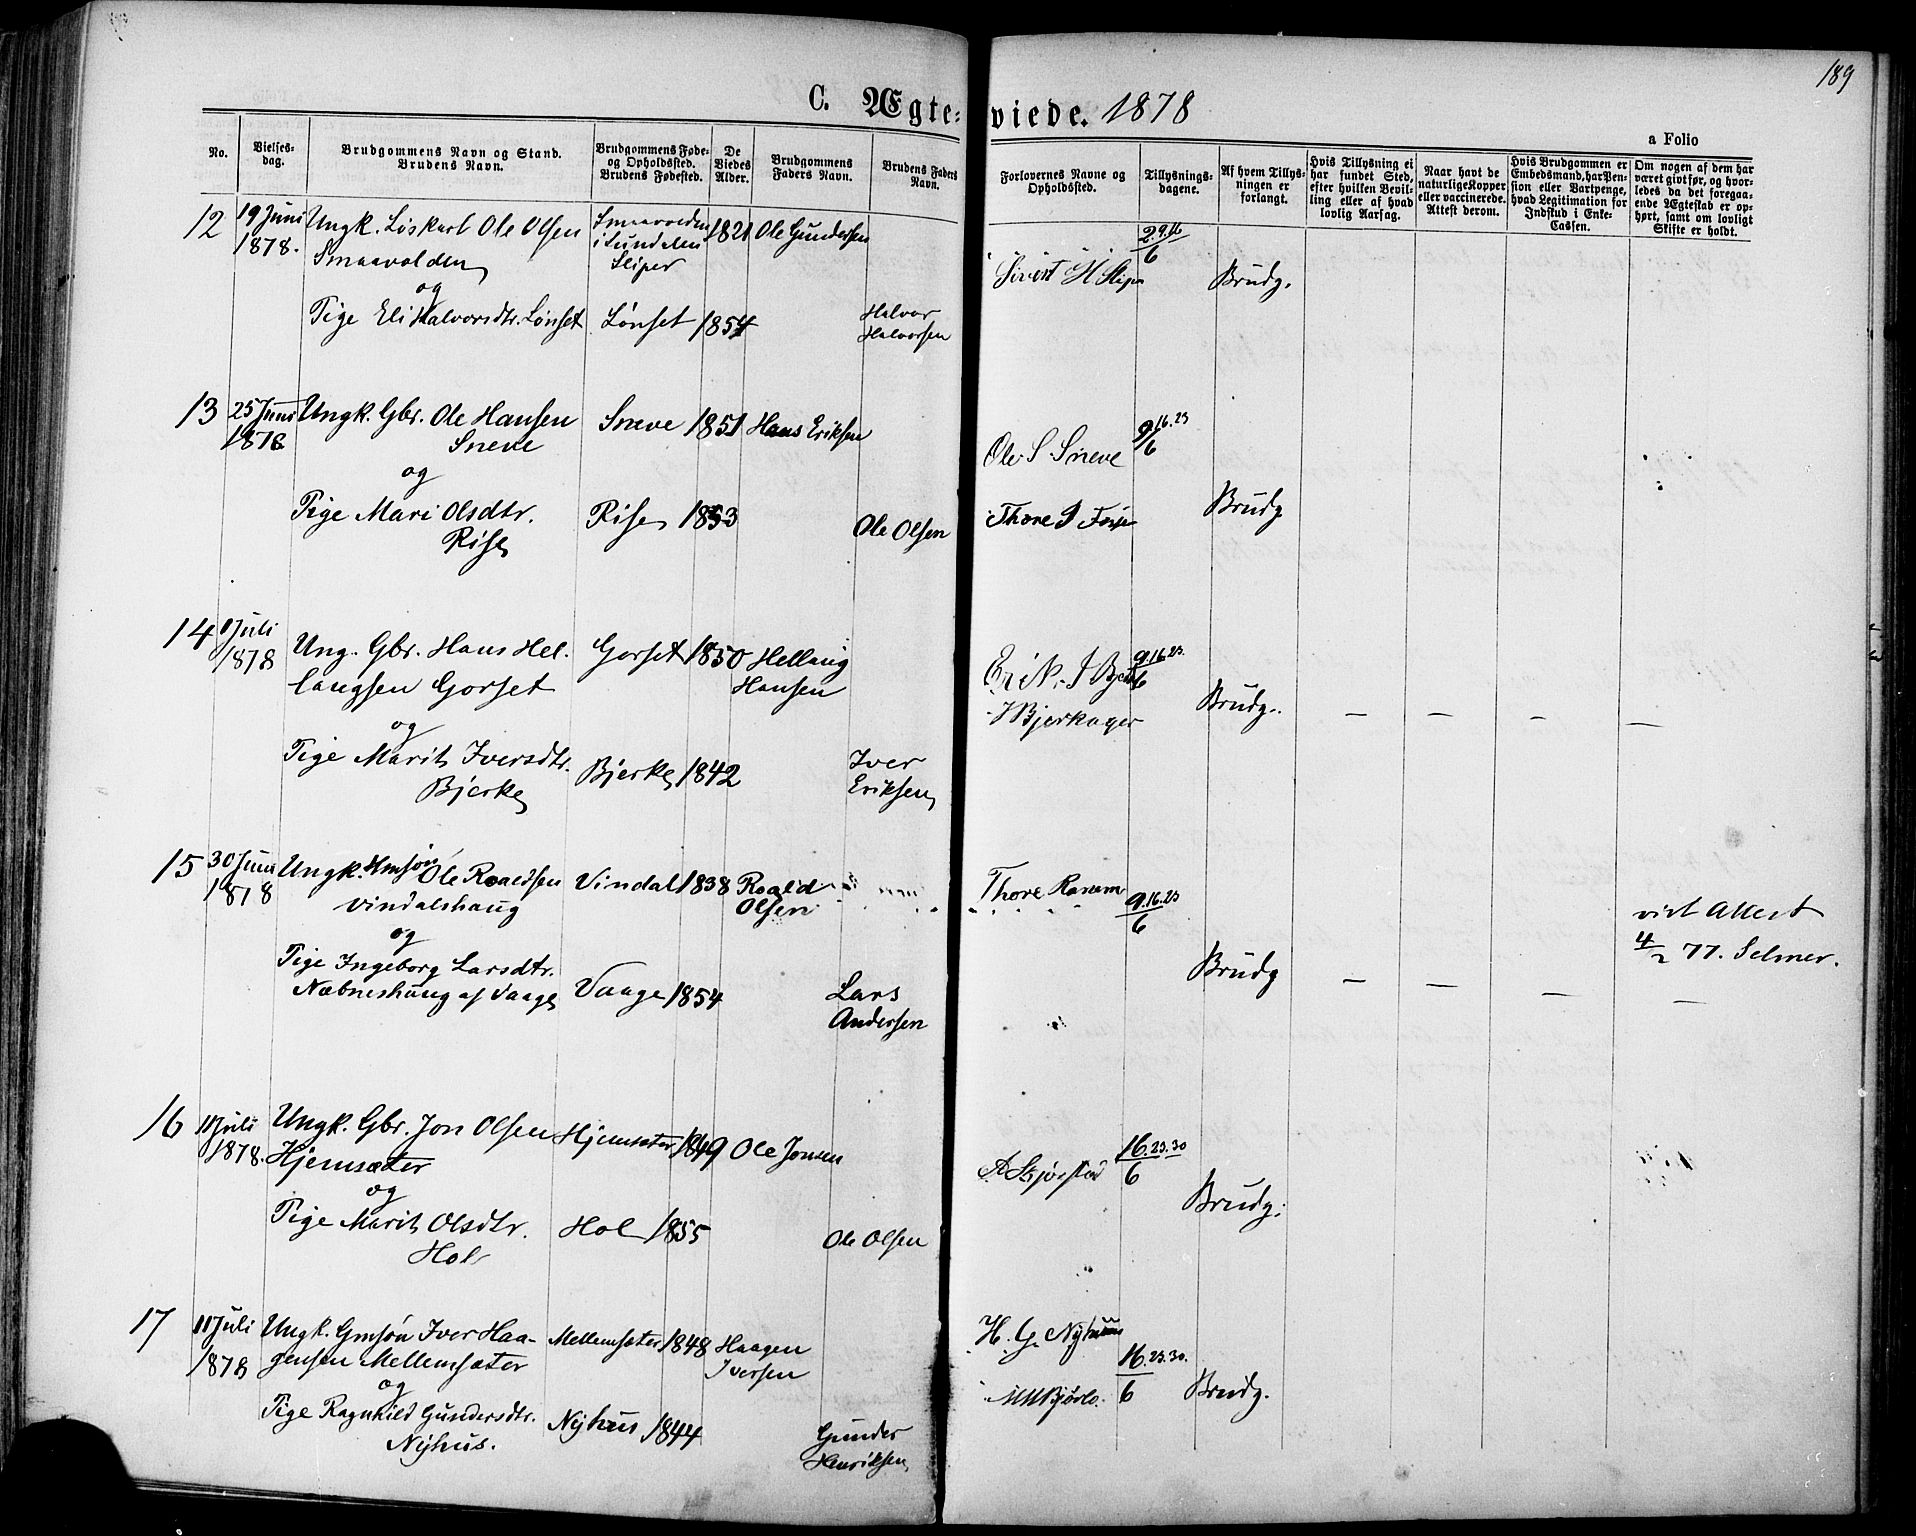 189
C. Ægte-
viede. 1878
a Folio
No.
Vielses-
dag.
Brudgommens Navn og Stand.
Brudens Navn.
Brudgommens Føde-
og Opholdssted.
Brudens Fødested.
De
Viedes
Alder.
Brudgommens
Faders Navn.
Brudens Faders
Navn.
Forlovernes Navne og
Opholdssted.
Tillysnings-
dagene.
Af hvem Tillys-
ningen er
forlangt.
Hvis Tillysning ei
har fundet Sted,
efter hvilken Bevil-
ling eller af hvad
lovlig Aarsag.
Naar havt de
naturlige Kopper
eller vaccinerede.
Attest derom.
Hvis Brudgommen er
Embedsmand, har Pen-
sion eller Vartpenge,
hvad Legitimation for
Indskud i Enke-
Cassen.
Om nogen af dem har
været gift før, og hvor-
ledes da det foregaa-
ende Ægteskab er op-
hørt, samt om lovligt
Skifte er holdt.
12
19 Juni
1878.
Ungk. Løskarl Ole Olsen
Smaavolden
og
Pige Eli Halvorsdtr. Lønset
Smaavolden
i Sundalen
Sliper
Lønset
1821
1854
Ole Gundersen
Halvor
Halvorsen
Sivert H Sliper
2.9.16
6
Brudg.
13
25 Juni
1878
Ungk. Gbr. Ole Hansen
Sneve
og
Pige Mari Olsdtr.
Rise
Sneve
Rise
1851
1853
Hans Eriksen
Ole Olsen
Ole S Sneve
Thore
9.16.23
6
Brudg
14
1 Juli
1878
Ung. Gbr. Hans Hel-
laugsen Gorset
og
Pige Marit Iversdtr.
Bjerke
Gorset
Bjerke
1850
1842
Hellaug
Hansen
Iver
Eriksen
Erik. I
Bjerkager
9.16.23.
6
Brudg.
— — — —
15
30 Juni
1878
Ungk. Hmsøn Ole Roaldsen
Vindalshaug
og
Pige Ingeborg Larsdtr.
Næbneshaug af Vaage
Vindal
Vaage
1838
1854
Roald
Olsen
Lars
Andersen
Thore Ranem
9.16.23
6
Brudg
— — — —
vist Attest
4/2 77. Selmer.
16
11 Juli
1878.
Ungk. Gbr. Jon Olsen
Hjemsæter
og
Pige Marit Olsdtr.
Hol
Hjemsæter
Hol
1849
1855
Ole Jonsen
Ole Olsen
A Skjøstad
16.23.30
6
Brudg.
17
11 Juli
1878
Ungk. Gmsøn Iver Haa-
gensen Mellemsæter
og
Pige Ragnhild Gundersdtr.
Nyhus.
Mellemsæter
Nyhus
1848
1844
Haagen
Iversen
Gunder
Henriksen
H. G. Nyhuus
16.23.30.
6
Brudg.